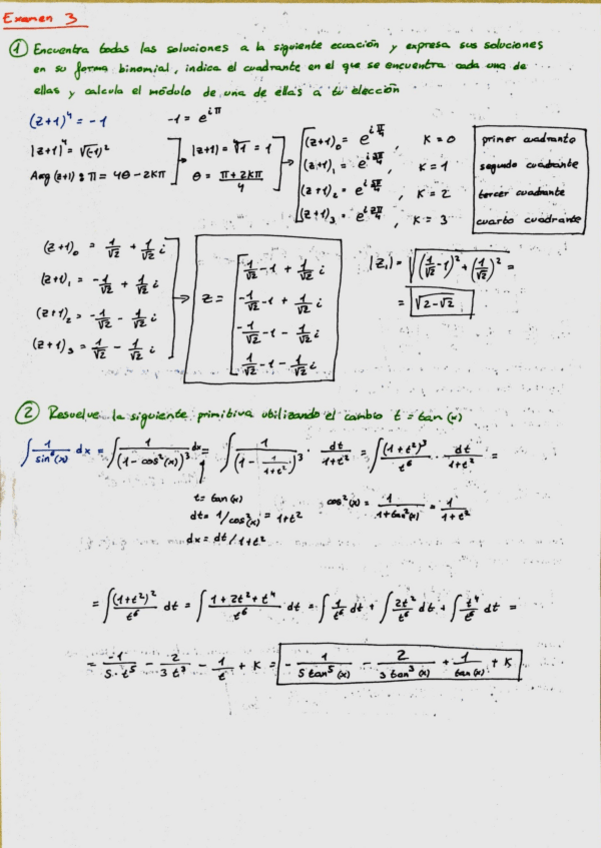 Examen 3
① Encuentra todas las soluciones a la siguiente ecuación y expresa sus soluciones
en su forma binomial, indica el cuadrante en el que se encuentra cada una de
ellas y calcula el módulo de una de ellas a tu elección
(z+1)⁴ = -1    -1 = e^{iπ}
|z+1|⁴ = √(-1)²    |z+1| = ⁴√1 = 1
Arg (z+1) : π = 4θ - 2kπ    θ = (π + 2kπ)/4
(z+1)₀ = e^{iπ/4}, K = 0    primer cuadrante
(z+1)₁ = e^{i3π/4}, K = 1    segundo cuadrante
(z+1)₂ = e^{i5π/4}, K = 2    tercer cuadrante
(z+1)₃ = e^{i7π/4}, K = 3    cuarto cuadrante
(z+1)₀ = 1/√2 + 1/√2 i
(z+1)₁ = -1/√2 + 1/√2 i
(z+1)₂ = -1/√2 - 1/√2 i
(z+1)₃ = 1/√2 - 1/√2 i
z =
1/√2 - 1 + 1/√2 i
-1/√2 - 1 + 1/√2 i
-1/√2 - 1 - 1/√2 i
1/√2 - 1 - 1/√2 i
|z₁| = √((1/√2 - 1)² + (1/√2)²) =
= √(2-√2)
② Resuelve la siguiente primitiva utilizando el cambio t = tan (x)
∫ 1/sin⁶(x) dx = ∫ 1/(1 - cos²(x))³ dx = ∫ 1/(1 - 1/(1+t²))³ · dt/(1+t²) = ∫ (1+t²)³/t⁶ · dt/(1+t²) =
t = tan (x)    cos²(x) = 1/(1+tan²(x)) = 1/(1+t²)
dt = 1/cos²(x) = 1+t²
dx = dt/1+t²
= ∫ (1+t²)²/t⁶ dt = ∫ (1 + 2t² + t⁴)/t⁶ dt = ∫ 1/t⁶ dt + ∫ 2t²/t⁶ dt + ∫ t⁴/t⁶ dt =
= -1/(5·t⁵) - 2/(3t³) - 1/t + K = - 1/(5 tan⁵(x)) - 2/(3 tan³(x)) + 1/tan(x) + K